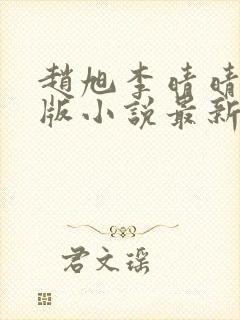 趙旭李晴晴
版小說最新
君文瑤